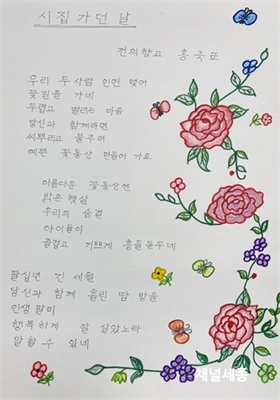 시집가던 날
전의향교 홍죽표
우리 두사람 인연 맺어
꽃길을 가네
두렵고 떨리는 마음
당신과 함께라면
씨뿌리고 물주며
예쁜 꽃동산 만들어 가요
아름다운 꽃동산엔
밝은 햇살
우리의 숨결
아이들이
즐겁고 기쁘게 흥을돋우네
팔십년 긴 세월
당신과 함께 흘린 땀 방울
인생 말미
행복하게 잘 살았노라
말할 수 있네
채널세종